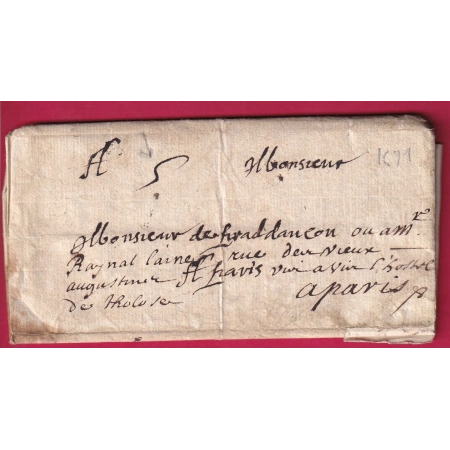 5 Monsieur
Monsieur de fraddançon ou a mr
Raynal laine rue des vieux
augustins A paris vis a vis l'hostel
de tholose a paris